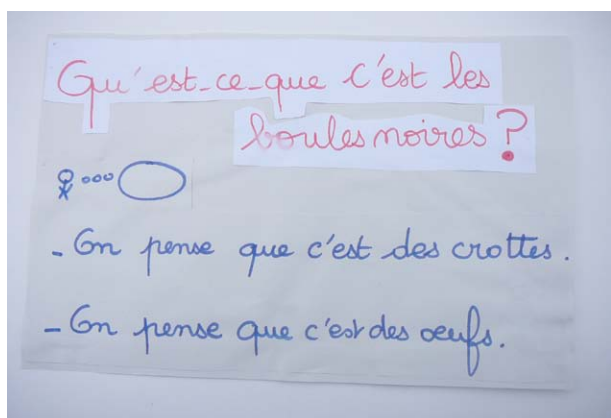 Qu'est-ce-que c'est les
boules noires ?
- On pense que c'est des crottes.
- On pense que c'est des œufs.